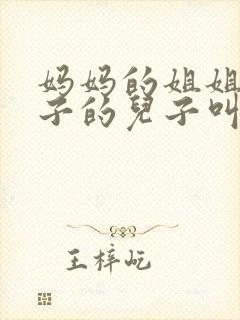 妈妈的姐姐
子的兒子叫
王梓屹